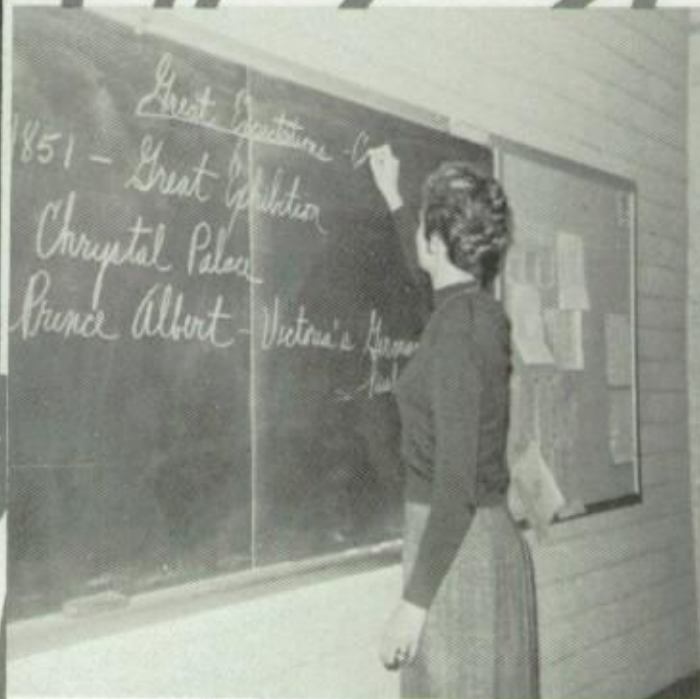 Great Expectations - C
1851 - Great Exhibition
Chrystal Palace
Prince Albert - Victoria's German